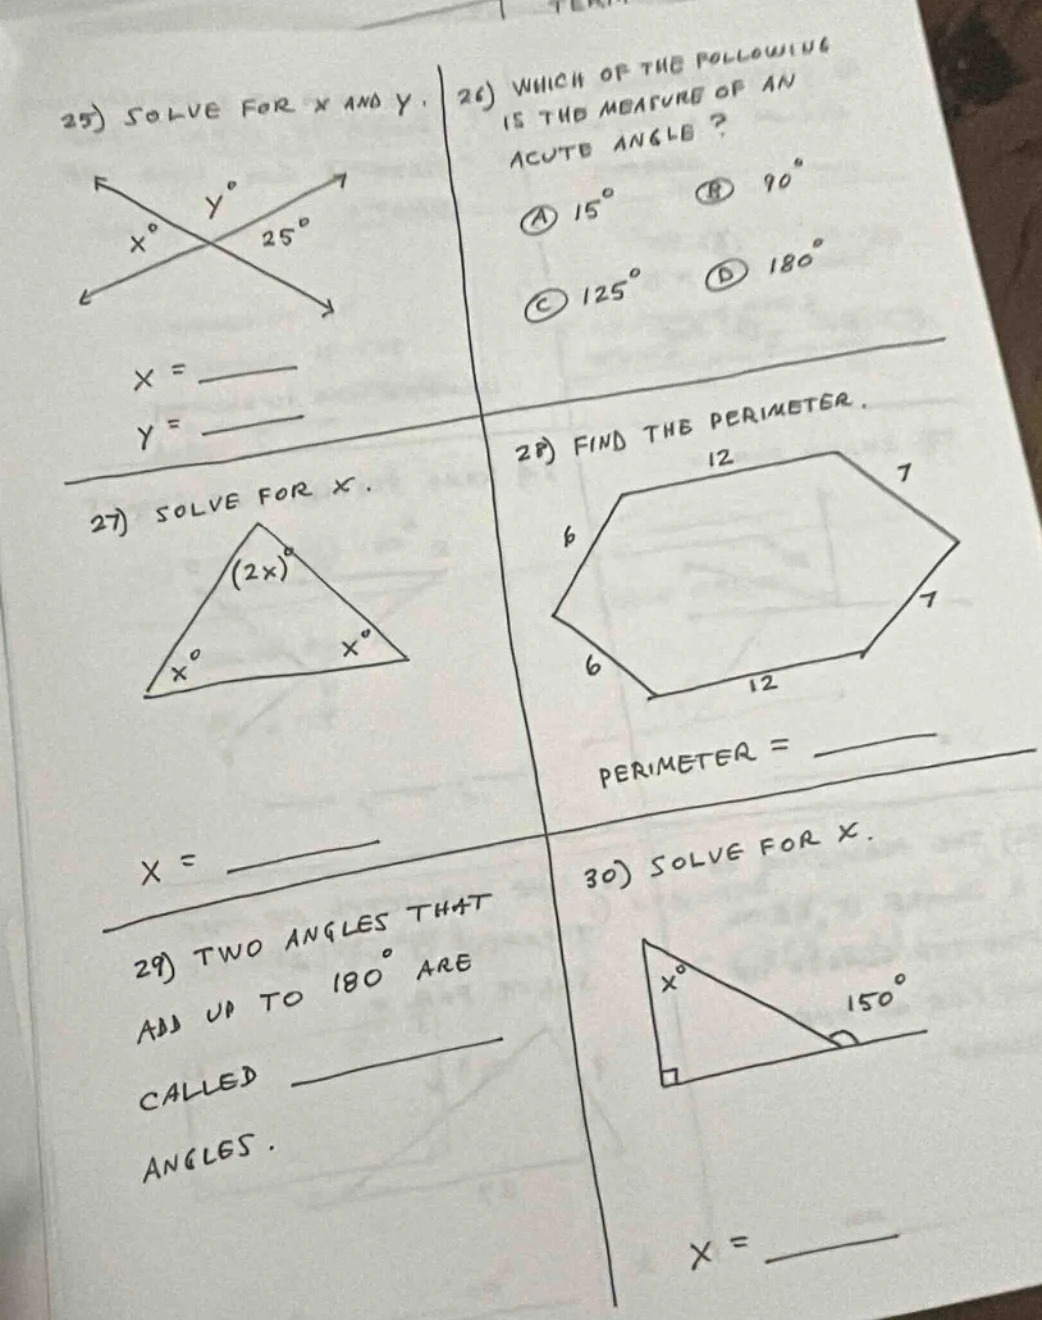 25) SOLVE FOR X AND Y.
y°
x°
25°
X = ______
Y = ______
26) WHICH OF THE FOLLOWING
IS THE MEASURE OF AN
ACUTE ANGLE?
(A) 15° (B) 90°
(C) 125° (D) 180°
27) SOLVE FOR X.
(2x)°
x° x°
X = ______
28) FIND THE PERIMETER.
12
7
6
7
6
12
PERIMETER = ______
29) TWO ANGLES THAT
ADD UP TO 180° ARE
CALLED ______
ANGLES.
30) SOLVE FOR X.
x°
150°
X = ______